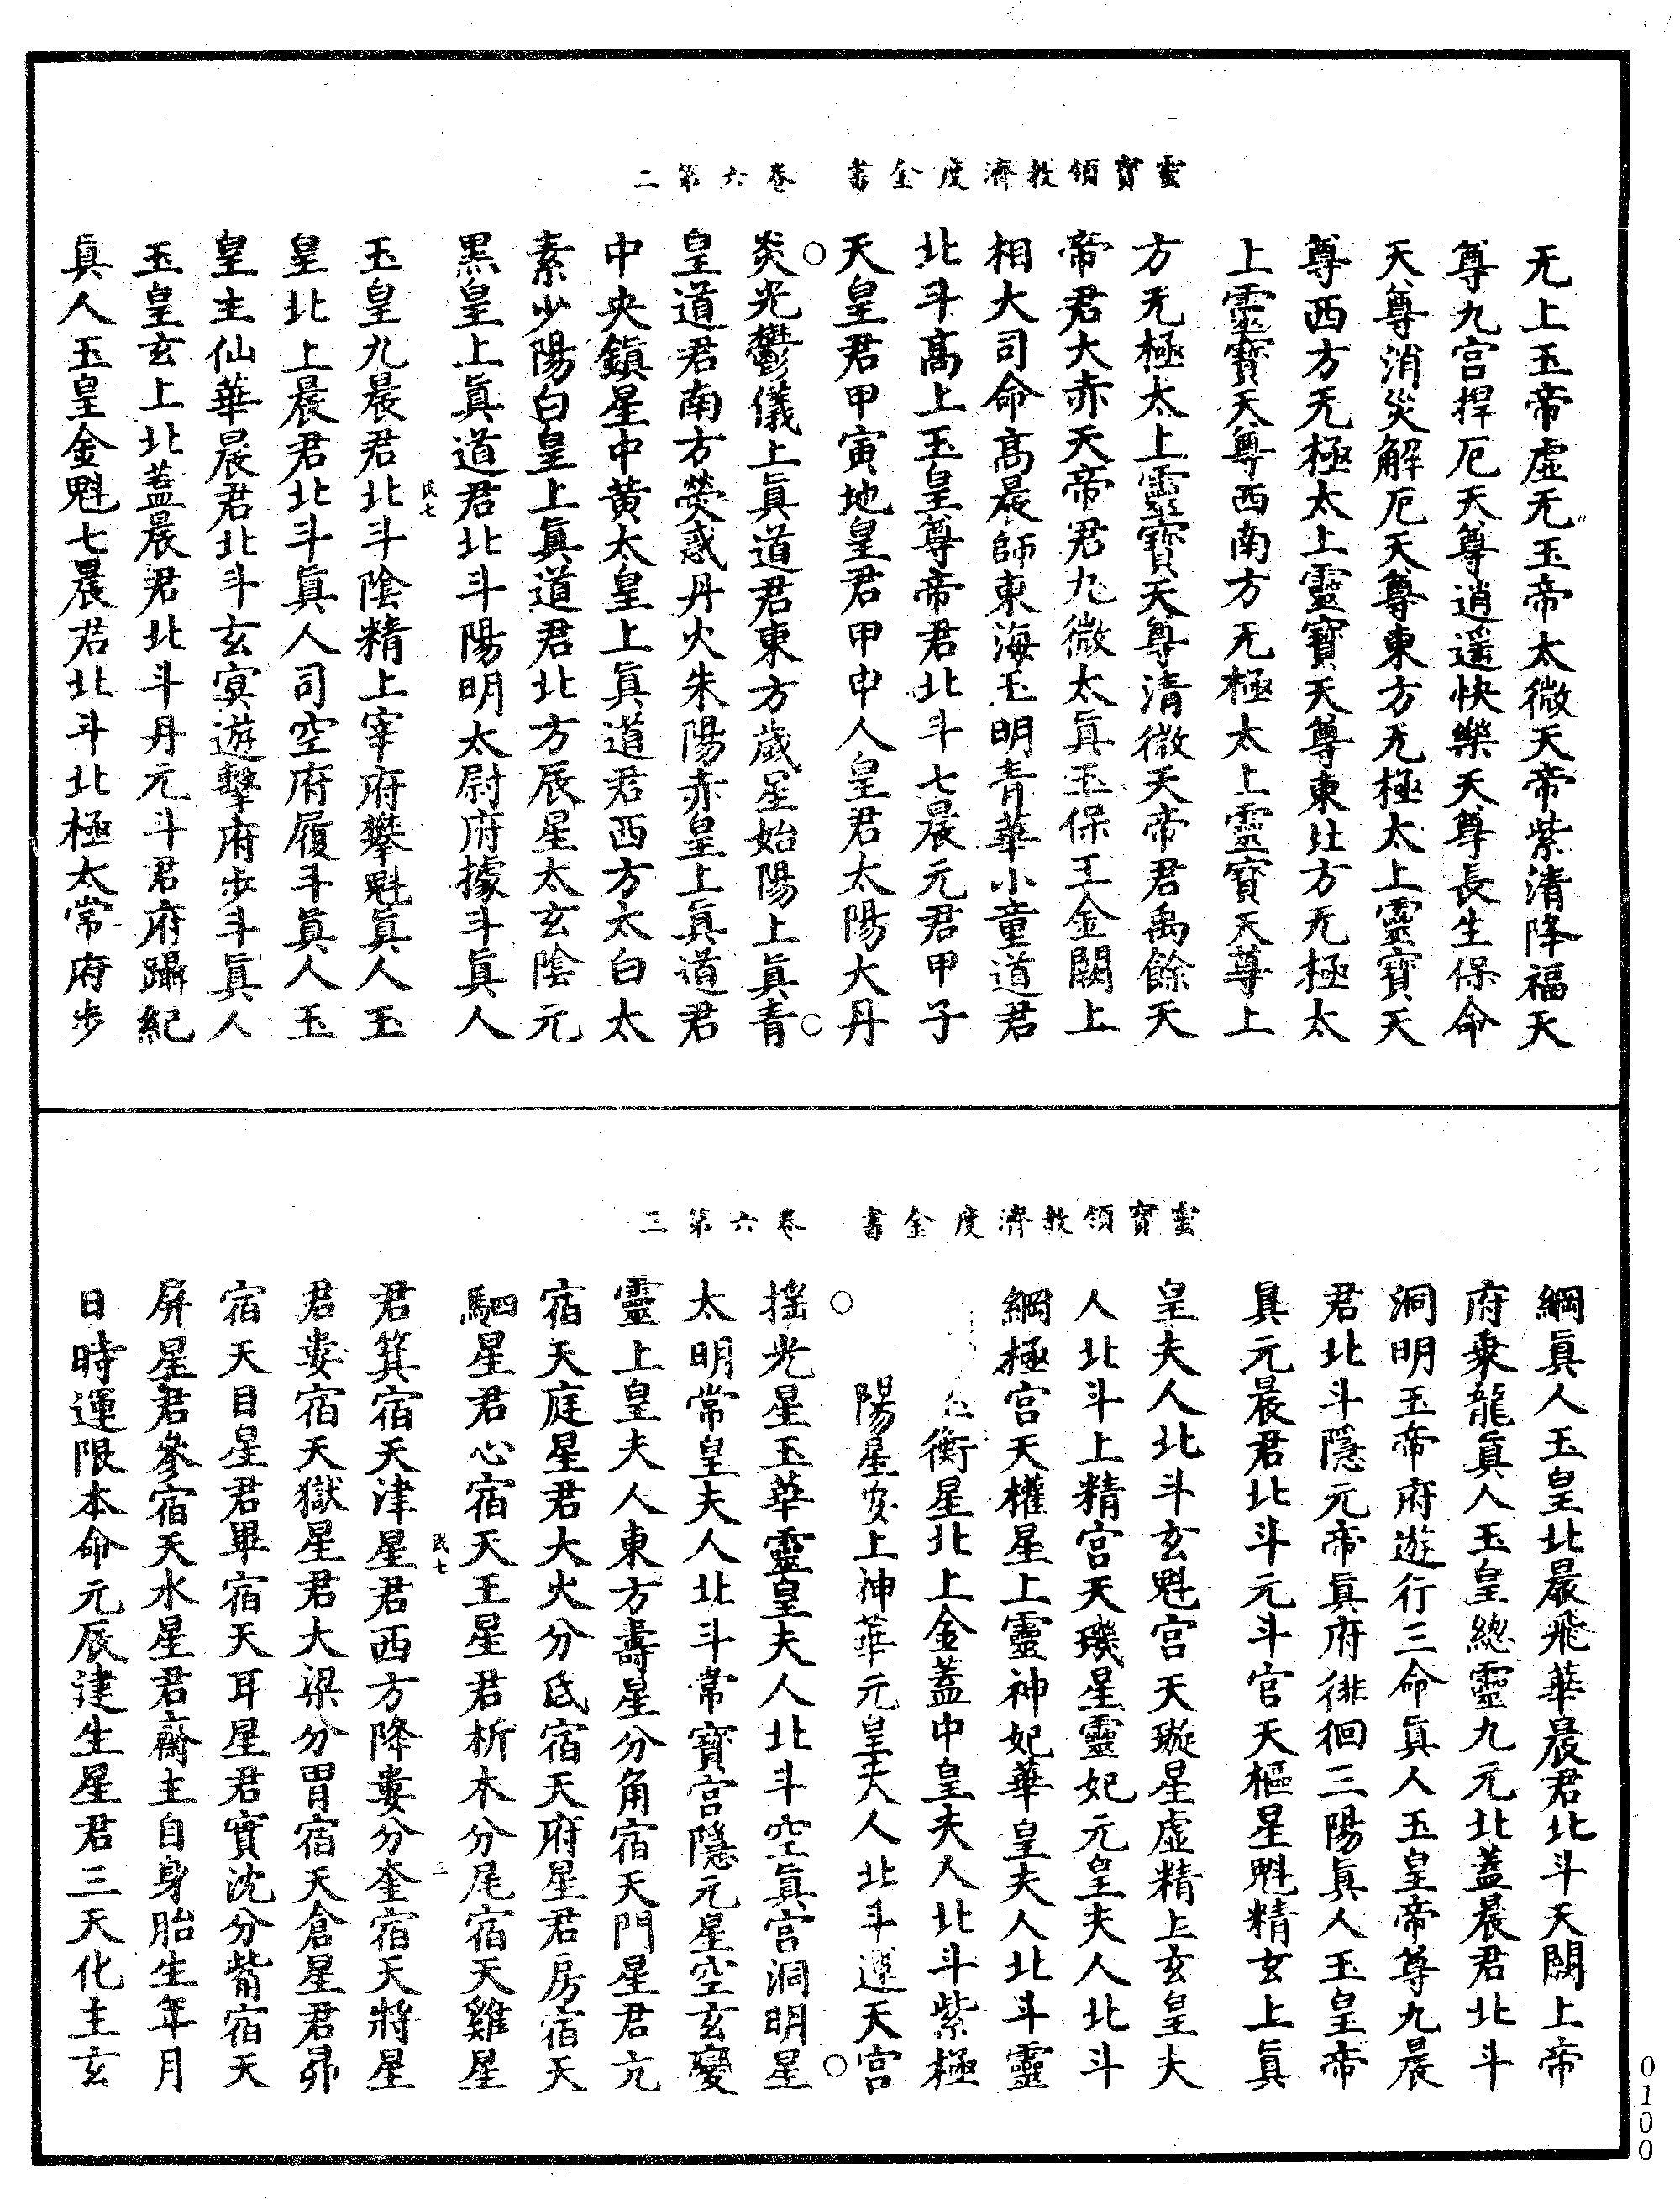 靈寶領教濟度金書　卷六第二
无上玉帝虛无玉帝太微天帝紫清降福天
尊九宮捍厄天尊逍遥快樂天尊長生保命
天尊消災解厄天尊東方无極太上靈寶天
尊西方无極太上靈寶天尊東北方无極太
上靈寶天尊西南方无極太上靈寶天尊上
方无極太上靈寶天尊清微天帝君禹餘天
帝君大赤天帝君九微太眞玉保王金闕上
相大司命高晨師東海玉明青華小童道君
北斗高上玉皇尊帝君北斗七晨元君甲子
天皇君甲寅地皇君甲申人皇君太陽大丹
炎光鬱儀上眞道君東方歲星始陽上眞青
皇道君南方熒惑丹火朱陽赤皇上眞道君
中央鎮星中黄太皇上眞道君西方太白太
素少陽白皇上眞道君北方辰星太玄陰元
黑皇上眞道君北斗陽明太尉府據斗眞人
民七
玉皇九晨君北斗陰精上宰府攀魁眞人玉
皇北上晨君北斗眞人司空府履斗眞人玉
皇主仙華晨君北斗玄㝠遊擊府步斗眞人
玉皇玄上北蓋晨君北斗丹元斗君府躡紀
眞人玉皇金魁七晨君北斗北極太常府步
靈寶領教濟度金書　卷六第三
綱眞人玉皇北晨飛華晨君北斗天關上帝
府乗龍眞人玉皇總靈九元北蓋晨君北斗
洞明玉帝府遊行三命眞人玉皇帝尊九晨
君北斗隱元帝眞府徘徊三陽眞人玉皇帝
眞元晨君北斗元斗官天樞星魁精玄上眞
皇夫人北斗玄魁宮天璇星虛精上玄皇夫
人北斗上精宮天璣星靈妃元皇夫人北斗
綱極宮天權星上靈神妃華皇夫人北斗靈
衡星北上金蓋中皇夫人北斗紫極
陽星安上神華元皇夫人北斗運天宮
摇光星玉華靈皇夫人北斗空眞宮洞明星
太明常皇夫人北斗常寶宮隱元星空玄變
靈上皇夫人東方壽星分角宿天門星君亢
宿天庭星君大火分氐宿天府星君房宿天
駟星君心宿天王星君析木分尾宿天雞星
民七
君箕宿天津星君西方降婁分奎宿天將星
君婁宿天獄星君大梁分胃宿天倉星君昴
宿天目星君畢宿天耳星君實沈分觜宿天
屏星君參宿天水星君齋主自身胎生年月
日時運限本命元辰建生星君三天化主玄
0100